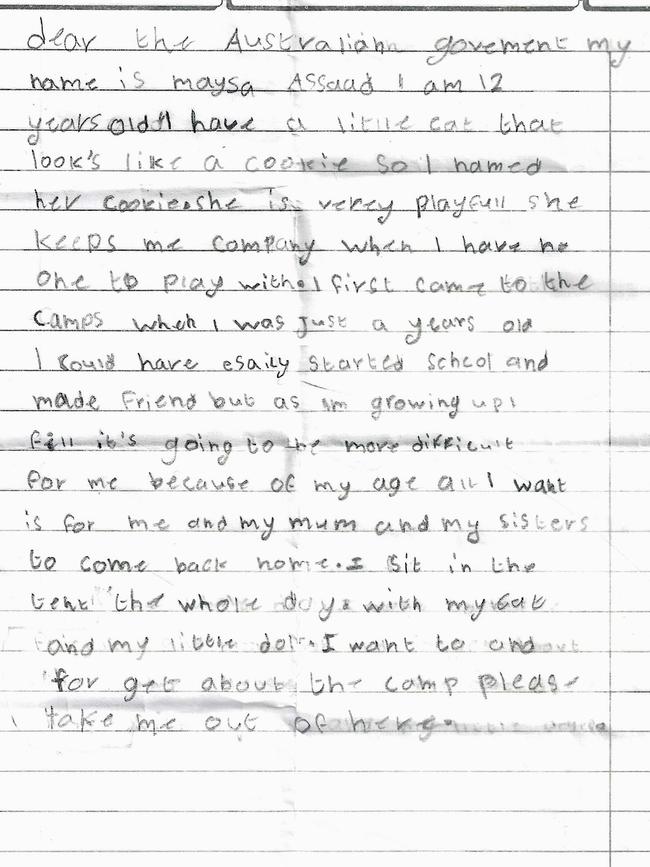 dear the Australiahn goverment my
name is maysa Assaad I am 12
years old I have a little cat that
look's like a cookie so I named
her cookie. she is verey playfull she
keeps me company when I have no
one to play with. I first came to the
camps when I was just a years old
I could have esaily started school and
made friend but as im growing up I
fell it's going to be more difficult
for me because of my age all I want
is for me and my mum and my sisters
to come back home. I sit in the
tent the whole day with my cat
and my little doll. I want to
for get about the camp please
take me out of here.